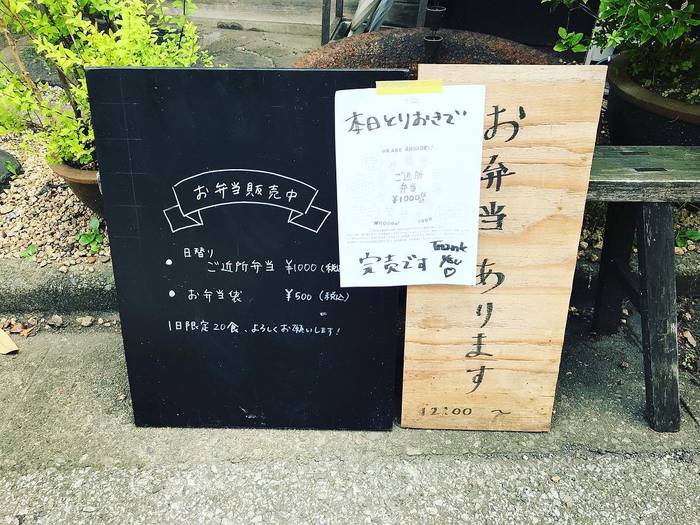 お弁当販売中
日替り
ご近所弁当 ¥1000(税込
お弁当袋 ¥500(税込)
1日限定20食、よろしくお願いします!
本日とりおきで
ご近所
弁当
¥1000
完売です
Thank
you♡
お弁当あります
12:00 〜